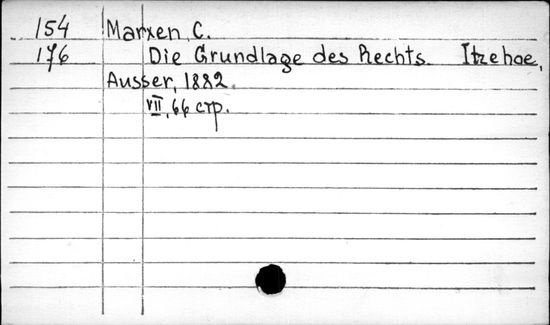 154 Marxen, C.
176 Die Grundlage des Rechts. Itzehoe,
Ausser, 1882.
VII, 66 стр.